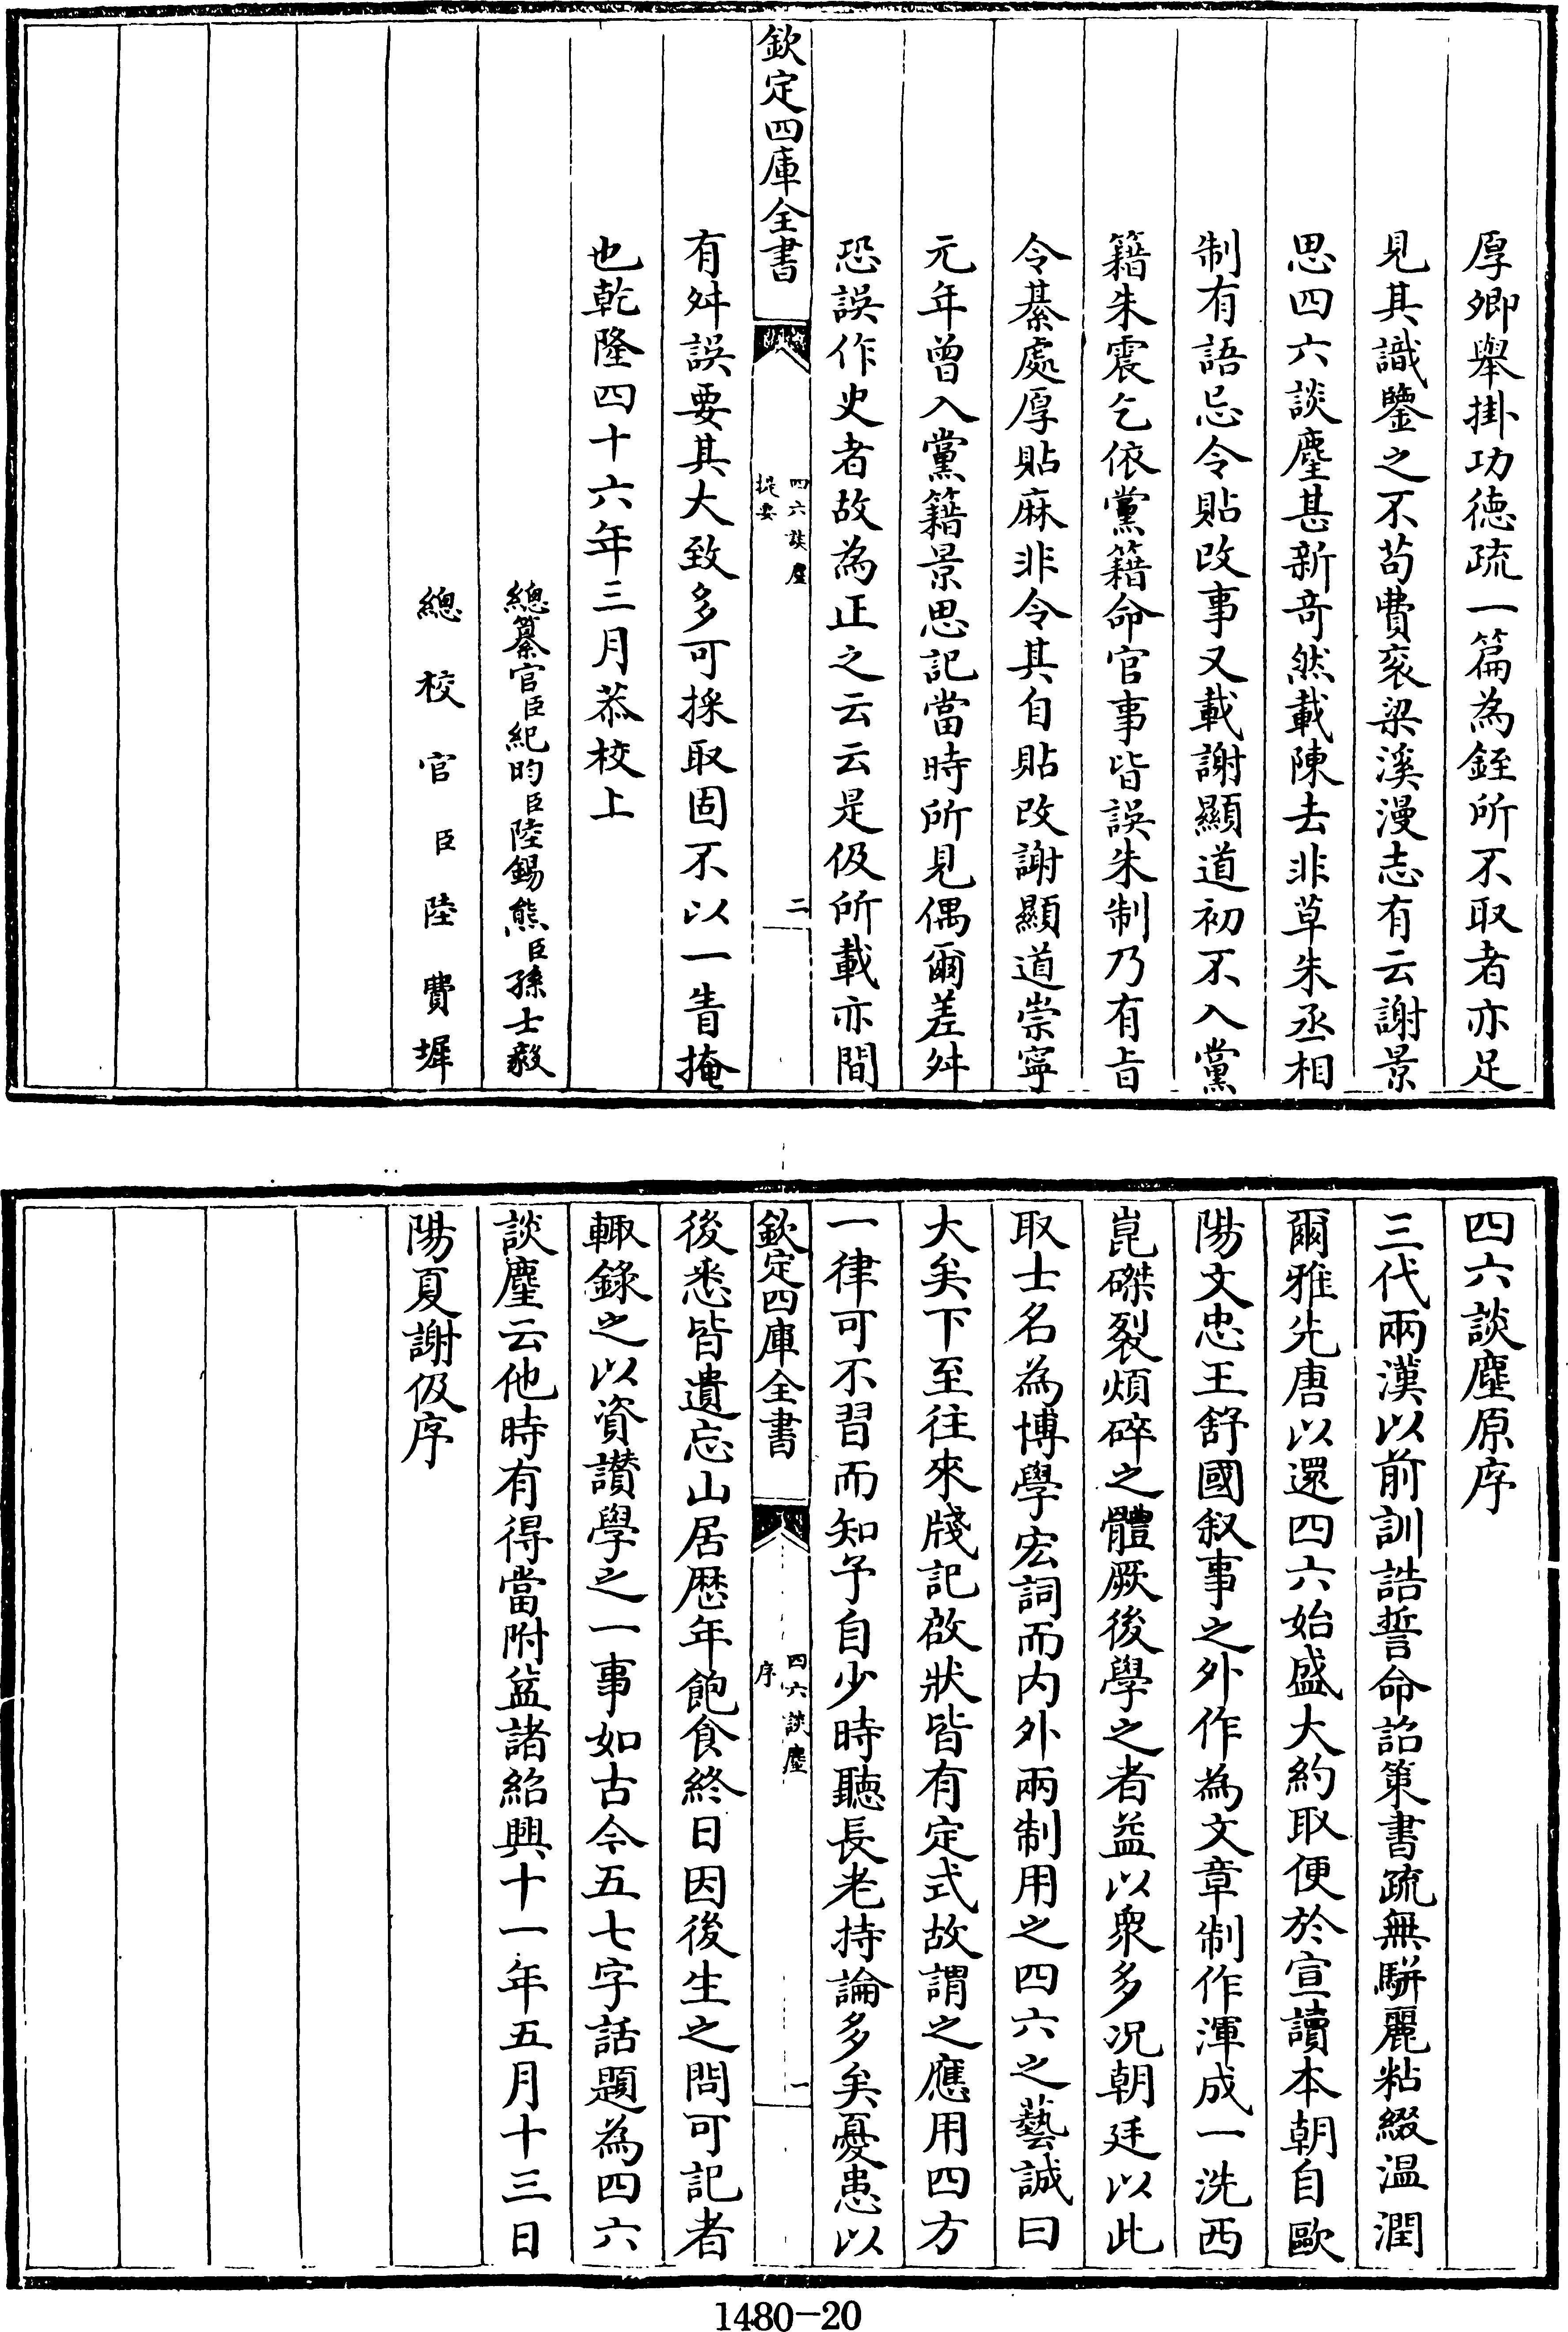 厚卿舉掛功徳疏一篇為銍所不取者亦足
見其識鑒之不苟費衮梁溪漫志有云謝景
思四六談麈甚新竒然載陳去非草朱丞相
制有語忌令貼改事又載謝顯道初不入黨
籍朱震乞依黨籍命官事皆誤朱制乃有㫖
令綦處厚貼麻非令其自貼改謝顯道崇寧
元年曾入黨籍景思記當時所見偶爾差舛
恐誤作史者故為正之云云是伋所載亦間
欽定四庫全書
四六談麈
提要
二
有舛誤要其大致多可採取固不以一眚掩
也乾隆四十六年三月恭校上
總纂官臣紀昀臣陸錫熊臣孫士毅
總校官臣陸費墀
四六談麈原序
三代兩漢以前訓誥誓命詔策書疏無駢麗粘綴温潤
爾雅先唐以還四六始盛大約取便於宣讀本朝自歐
陽文忠王舒國叙事之外作為文章制作渾成一洗西
崑磔裂煩碎之體厥後學之者益以衆多况朝廷以此
取士名為博學宏詞而内外兩制用之四六之藝誠曰
大矣下至往來牋記啟狀皆有定式故謂之應用四方
一律可不習而知予自少時聽長老持論多矣憂患以
欽定四庫全書
四六談麈
序
一
後悉皆遺忘山居歴年飽食終日因後生之問可記者
輙錄之以資讃學之一事如古今五七字話題為四六
談麈云他時有得當附益諸紹興十一年五月十三日
陽夏謝伋序
1480-20